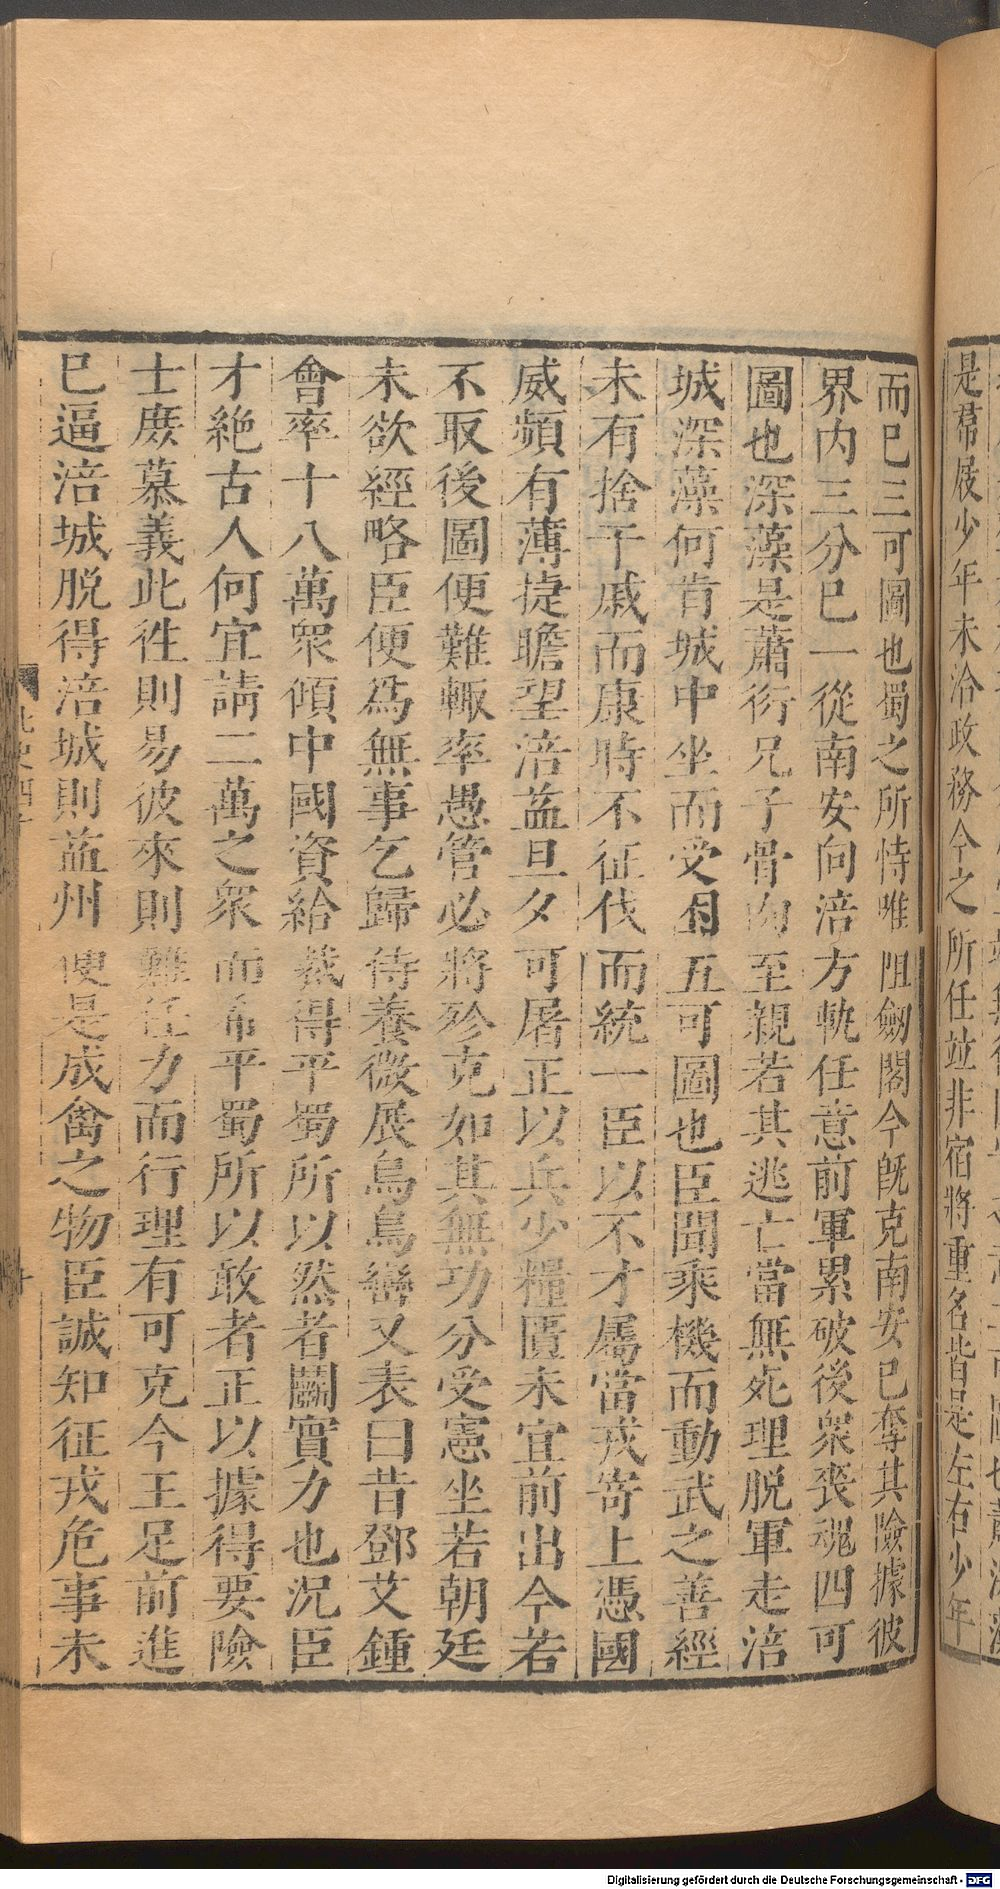 是帬屐少年未洽政務今之所任竝非宿將重名皆是左右少年
而已三可圖也蜀之所恃唯阻劒閣今旣克南安已奪其險據彼
界内三分已一從南安向涪方軌任意前軍累破後衆喪魂四可
圖也深藻是蕭衍兄子骨肉至親若其逃亡當無死理脱軍走涪
城深藻何肯城中坐而受困五可圖也臣聞乘機而動武之善經
未有捨干戚而康時不征伐而統一臣以不才屬當戎寄上憑國
威頻有薄捷瞻望涪益旦夕可屠正以兵少糧匱未宜前出今若
不取後圖便難輙率愚管必將殄克如其無功分受憲坐若朝廷
未欲經略臣便爲無事乞歸侍養微展烏鳥巒又表曰昔鄧艾鍾
會率十八萬衆傾中國資給裁得平蜀所以然者鬭實力也況臣
才絶古人何宜請二萬之衆而希平蜀所以敢者正以據得要險
士庻慕義此徃則易彼來則難任力而行理有可克今王足前進
已逼涪城脱得涪城則益州便是成禽之物臣誠知征戎危事未
北史四十
十
Digitalisierung gefördert durch die Deutsche Forschungsgemeinschaft - DFG